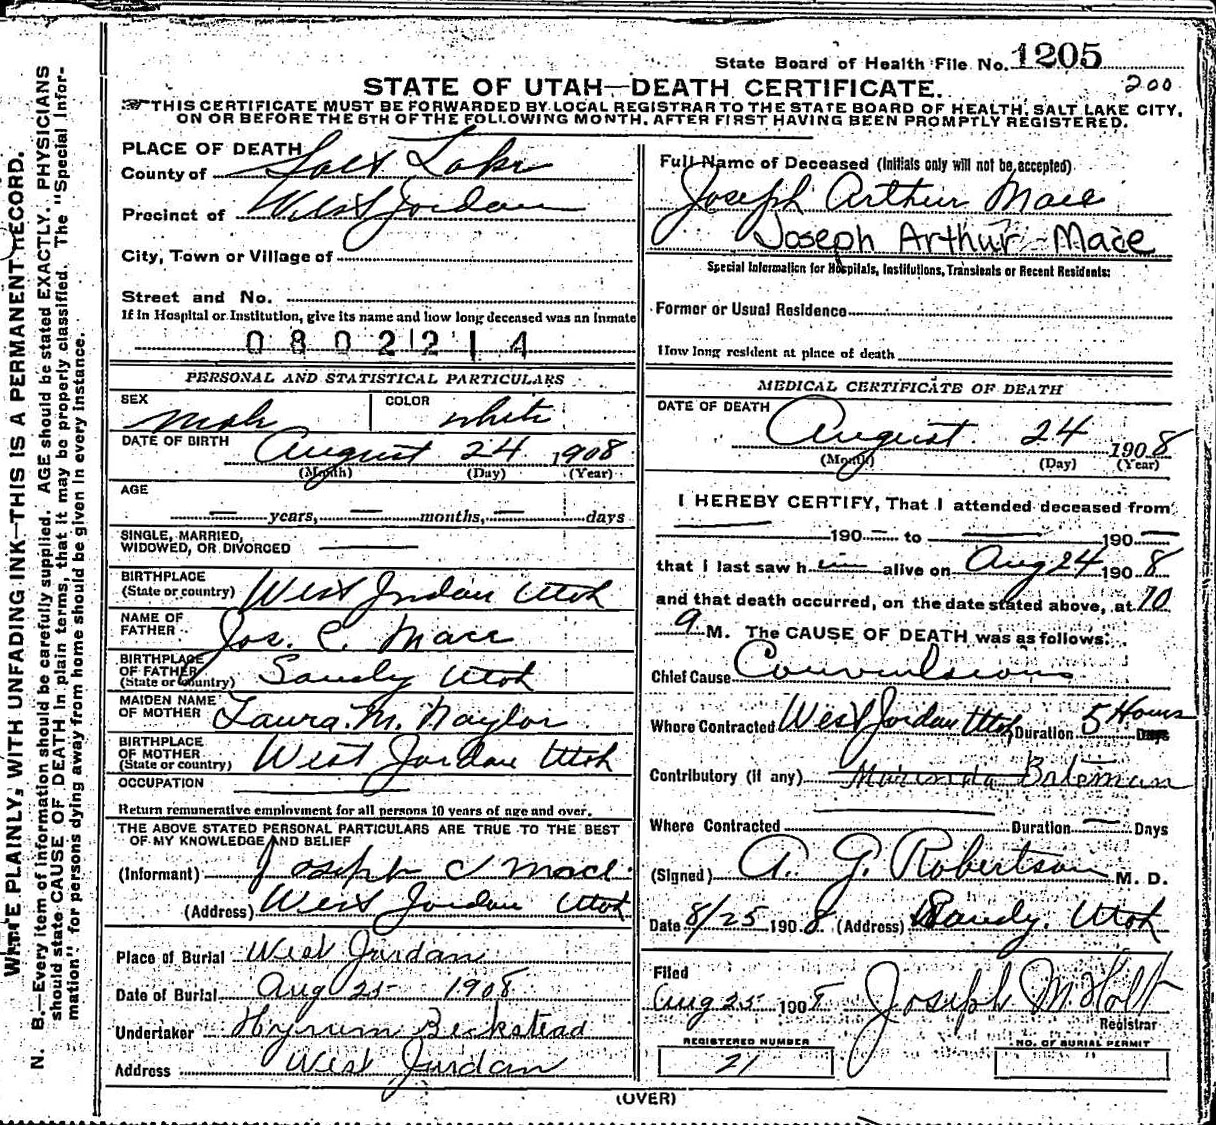 State Board of Health File No. 1205
200
STATE OF UTAH—DEATH CERTIFICATE.
THIS CERTIFICATE MUST BE FORWARDED BY LOCAL REGISTRAR TO THE STATE BOARD OF HEALTH, SALT LAKE CITY,
ON OR BEFORE THE 5TH OF THE FOLLOWING MONTH, AFTER FIRST HAVING BEEN PROMPTLY REGISTERED.
WRITE PLAINLY, WITH UNFADING INK—THIS IS A PERMANENT RECORD.
N. B.—Every item of information should be carefully supplied. AGE should be stated EXACTLY. PHYSICIANS
should state CAUSE OF DEATH in plain terms, that it may be properly classified. The "Special Infor-
mation" for persons dying away from home should be given in every instance.
PLACE OF DEATH
County of Salt Lake
Precinct of West Jordan
City, Town or Village of
Street and No.
If in Hospital or Institution, give its name and how long deceased was an inmate
0802214
PERSONAL AND STATISTICAL PARTICULARS
SEX Male COLOR white
DATE OF BIRTH August 24 1908
(Month) (Day) (Year)
AGE
— years, — months, — days
SINGLE, MARRIED,
WIDOWED, OR DIVORCED —
BIRTHPLACE
(State or country) West Jordan Utah
NAME OF
FATHER Jos. C. Mace
BIRTHPLACE
OF FATHER
(State or country) Sandy Utah
MAIDEN NAME
OF MOTHER Laura M. Naylor
BIRTHPLACE
OF MOTHER
(State or country) West Jordan Utah
OCCUPATION —
Return remunerative employment for all persons 10 years of age and over.
THE ABOVE STATED PERSONAL PARTICULARS ARE TRUE TO THE BEST
OF MY KNOWLEDGE AND BELIEF
(Informant) Joseph C Mace
(Address) West Jordan Utah
Place of Burial West Jordan
Date of Burial Aug 25 1908
Undertaker Hyrum Beckstead
Address West Jordan
Full Name of Deceased (Initials only will not be accepted)
Joseph Arthur Mace
Joseph Arthur Mace
Special Information for Hospitals, Institutions, Transients or Recent Residents:
Former or Usual Residence
How long resident at place of death
MEDICAL CERTIFICATE OF DEATH
DATE OF DEATH August 24 1908
(Month) (Day) (Year)
I HEREBY CERTIFY, That I attended deceased from
— 190 — to — 190 —
that I last saw h im alive on Aug 24 1908
and that death occurred, on the date stated above, at 10
M. The CAUSE OF DEATH was as follows:
Chief Cause Convulsions
Where Contracted West Jordan Utah Duration 5 Hours Days
Contributory (if any) Marinda Bateman
Where Contracted — Duration — Days
(Signed) A. G. Robertson M. D.
Date 8/25 1908 (Address) Sandy, Utah
Filed
Aug 25 1908 Joseph M. Holt
Registrar
REGISTERED NUMBER
21
NO. OF BURIAL PERMIT
"
(OVER)